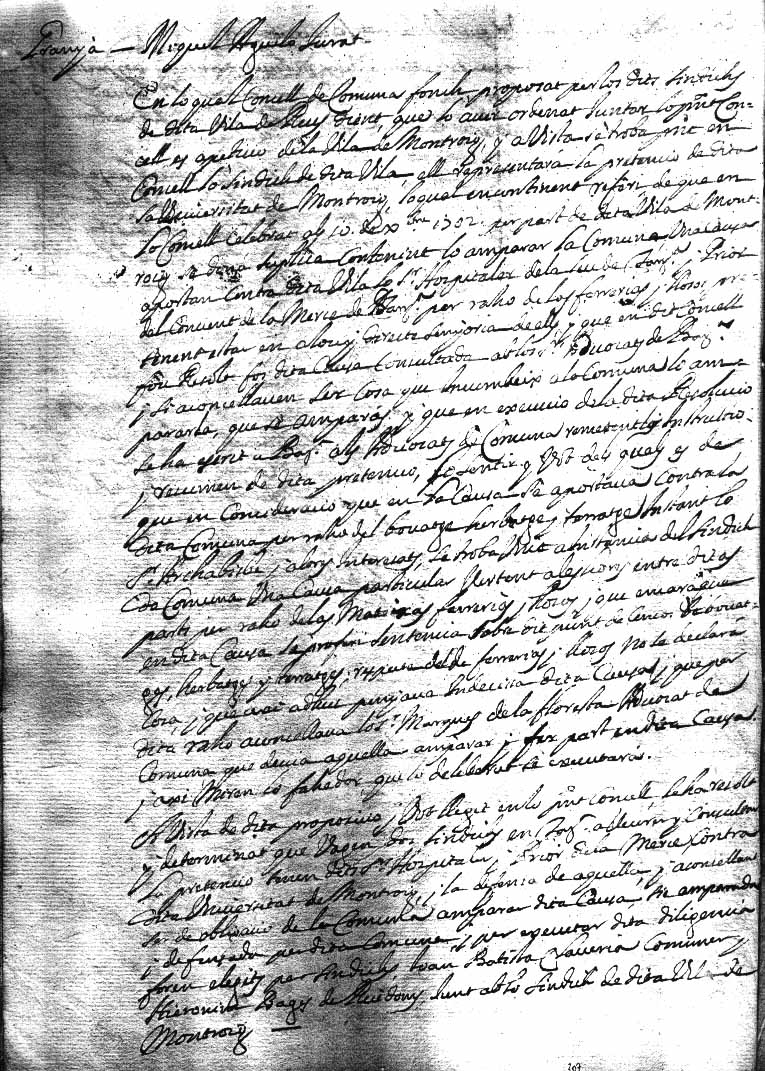 Franyà — Miquel Aguiló Jurat
En lo qual Concell de Comuna fonch proposat per los dits Sindichs
de dita Vila de Reus dient, que lo aver ordenat Juntar lo pnt Con-
cell es a peticio de la Vila de Montroig, y a Vista se troba pnt en
Concell lo Sindich de dita Vila, ell representara la pretencio de dita
la Universitat de Montroig, lo qual encontinent referi de que en
lo Concell celebrat als 10. de xbre 1702. per part de dita Vila de Mont-
roig se dona suplica contenint lo amparar la Comuna Una Causa
aportan contra dita Vila lo Sr. Hospitaler de la Seu de Tarna. y Prior
del Convent de la Merce de Barna. per raho de los ferreries, y llosos pre-
tenent estar en alou y directe senyoria de ells y que en dit Concell
fou Resolt fos dita Causa Consultada ab los Srs. Advocats de Barna.
y si aconcellaven ser cosa que Incumbeix a la Comuna lo am-
pararla, que se amparás, y que en execucio de la dita Resolucio
se ha escrit a Barna. als Advocats de Comuna remetentlos Instruccio
y resumen de dita pretencio, lo sentir y Vot dels quals es de
que en Consideracio que en la Causa se aportava Contra la
dita Comuna per raho del bovatge herbatge y terratge Instant lo
Sr. Archabisbe y alors Interesats, se troba Unit a Instancia del Sindich
de Comuna Una Causa particular Vertent alesmors entre ditas
parts per raho de las Mateixas ferrerias y llosos y que encaraque
en dita Causa se proferi Sentencia sobre dit punt de Censos Bovat-
ges, herbatges y terratges, respecte del de ferrerias y llosos no se declara
cosa, y que axi adhuc penjava Indecisa dita Causa, y que per
dita raho aconcellava lo Sr. Marques de la Floresta Advocat de
Comuna que devia aquella amparar y fer part en dita Causa.
y axi Miren lo fahedor que lo deliberat se executara.
A Vista de dita proposicio y Vot llegit en lo pnt Concell se ha resolt
y determinat que Vagen dos Sindichs en Tarna. a lleurer y Consultar
la pretencio tenen dits Sr. Hospitaler y Prior de la Merce Contra
dita Universitat de Montroig y la defensa de aquella y aconcellan
ser de obligacio de la Comuna amparar dita Causa sie amparada
y defensada per dita Comuna y per executar dita diligencia
foren elegits per Sindichs Joan Batista Claveria Comuner y
Hieronim Bages de Riudoms Junt ab lo Sindich de dita Vila de
Montroig —
207